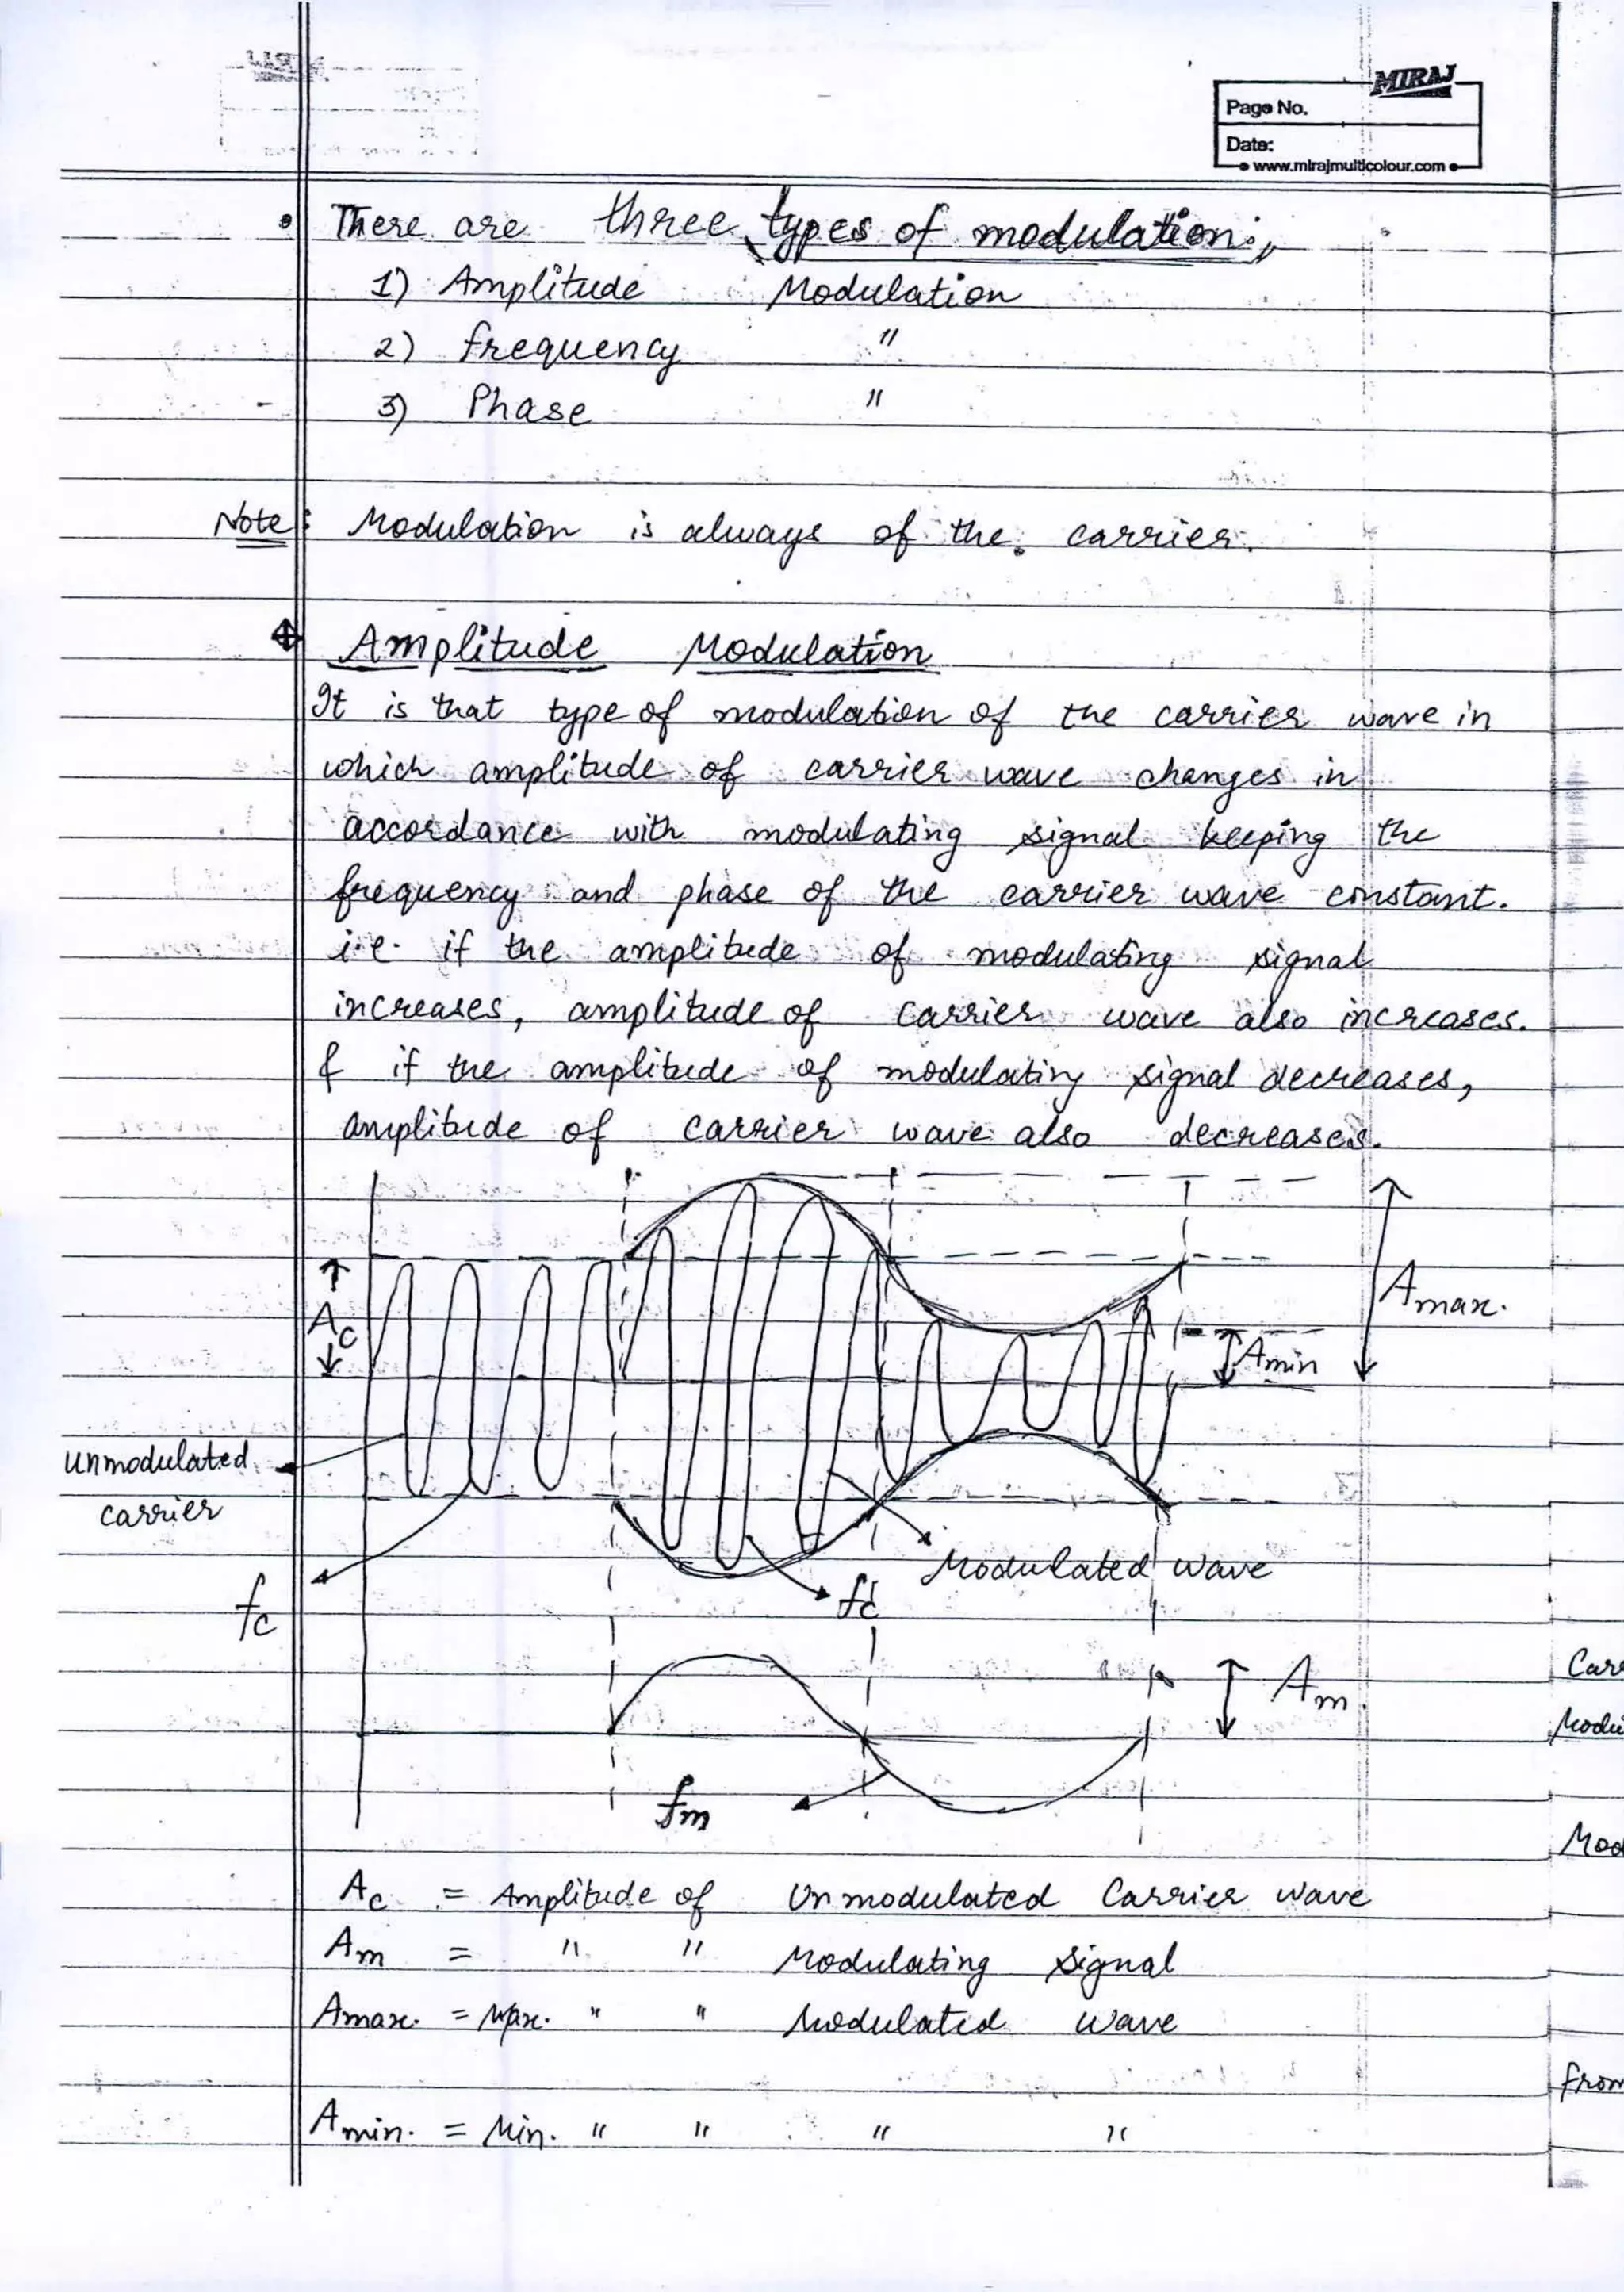 MIRAJ
Page No.
Date:
www.mirajmulticolour.com
There are three types of modulation:,
1) Amplitude Modulation
2) frequency "
3) Phase "
Note: Modulation is always of the carrier.
Amplitude Modulation
It is that type of modulation of the carrier wave in
which amplitude of carrier wave changes in
accordance with modulating signal keeping the
frequency and phase of the carrier wave constant.
i.e. if the amplitude of modulating signal
increases, amplitude of carrier wave also increases.
& if the amplitude of modulating signal decreases,
amplitude of carrier wave also decreases.
Ac
Amax.
Amin
unmodulated
carrier
Modulated wave
fc
fc
Am
fm
Ac = Amplitude of Unmodulated Carrier wave
Am = " " Modulating signal
Amax. = Max. " " Modulated wave
Amin. = Min. " " " "
Modu
from